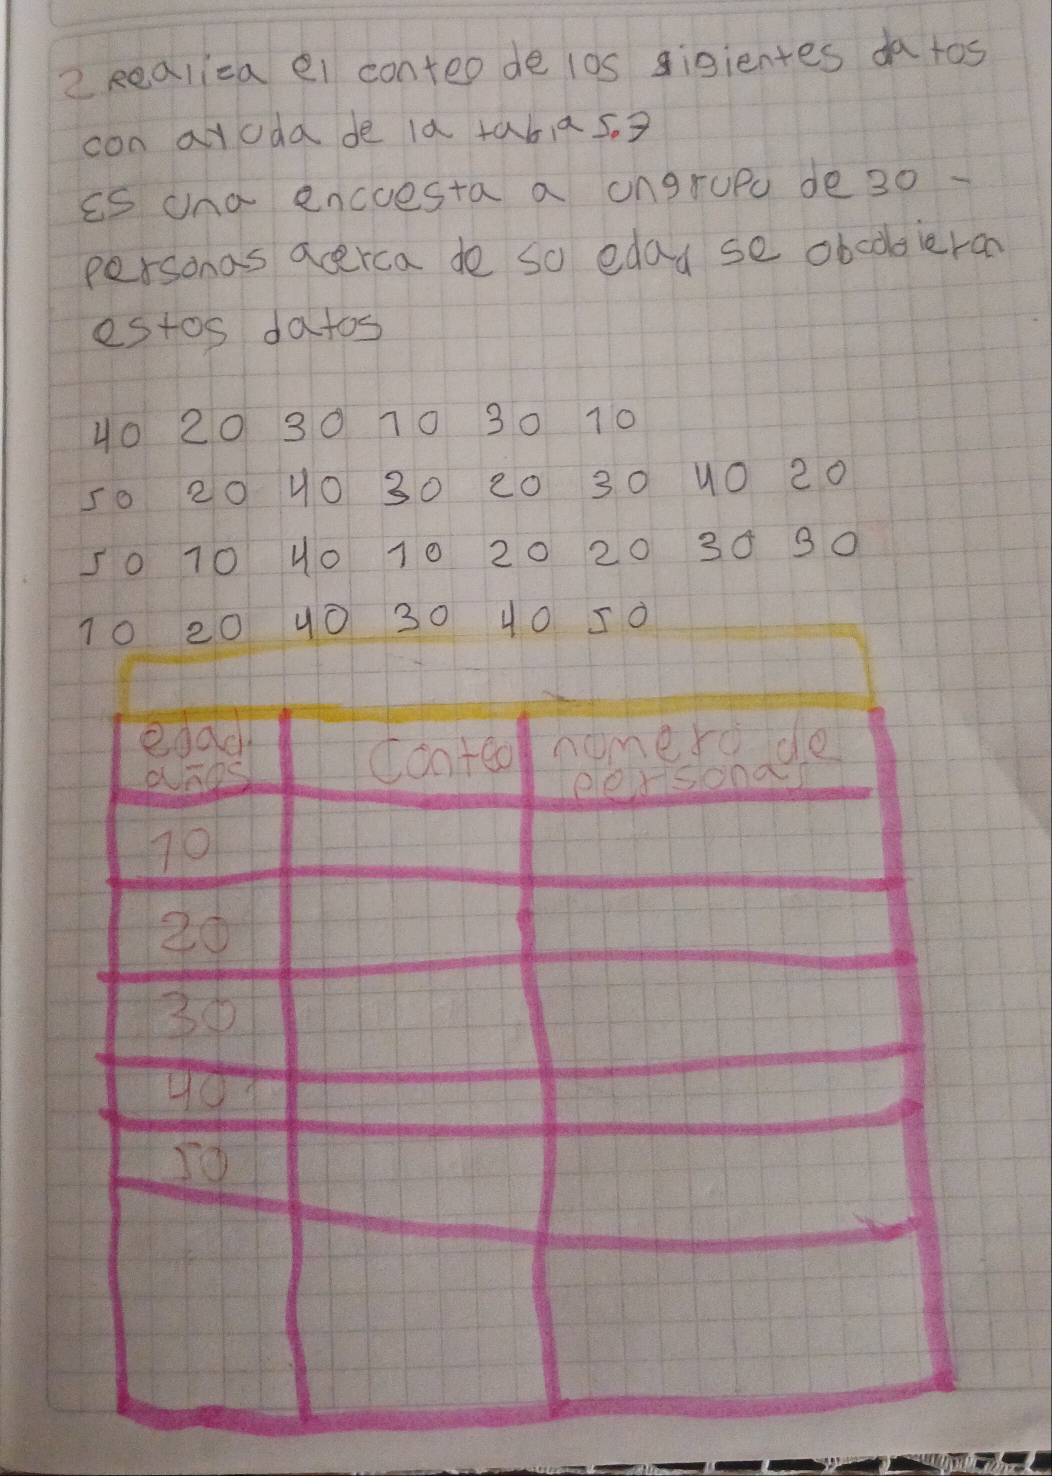 2 Realiza el conteo de los sigientes datos
con ayuda de la tabla 5.7
Es una encuesta a ungrupo de 30 -
personas acerca de su edad se
estos datos
40 20 30 10 30 10
50 20 40 30 20 30 40 20
50 10 40 10 20 20 30 30
10 20 40 30 40 50
edad conteo numero de
años personas
10
20
30
40
50